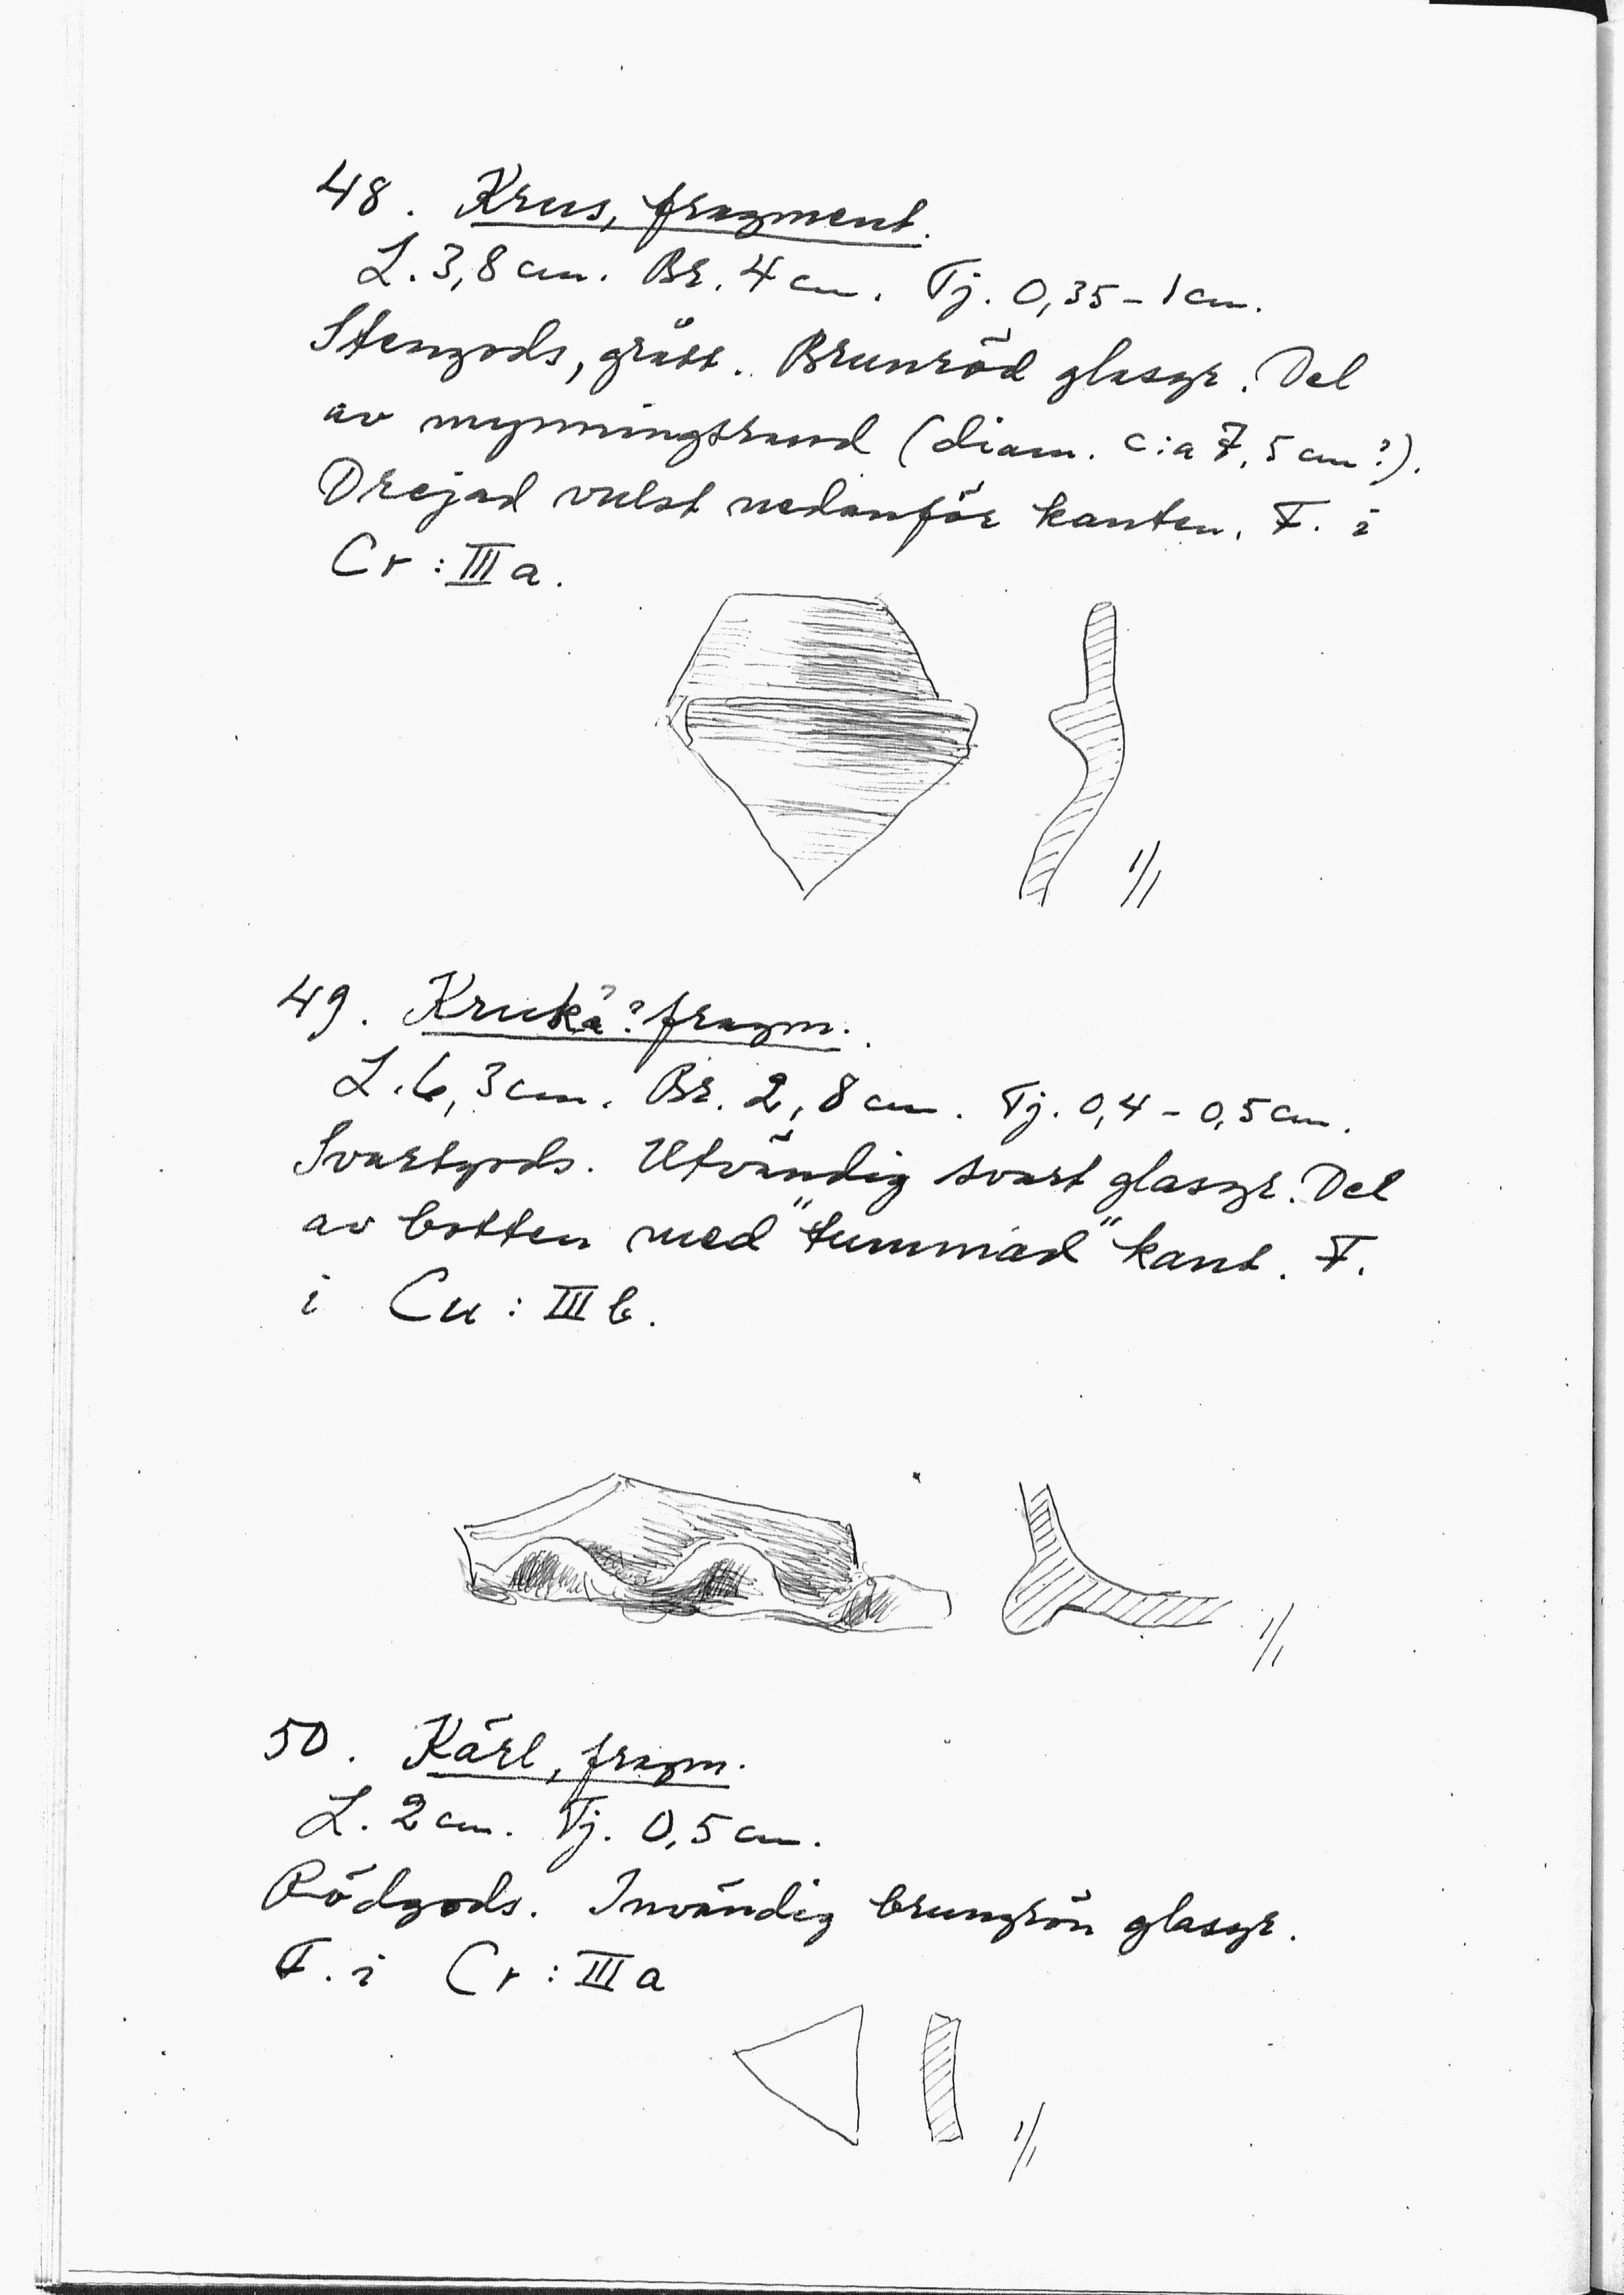 48. Krus, fragment.
L. 3,8 cm. Br. 4 cm. Tj. 0,35 - 1 cm.
Stengods, grått. Brunröd glasyr. Del
av mynningsrand (diam. c:a 7,5 cm?).
Drejad vulst nedanför kanten. F. i
Cr : III a.
1/1
49. Kruka? fragm.
L. 6,3 cm. Br. 2,8 cm. Tj. 0,4 - 0,5 cm.
Svartgods. Utvändig svart glasyr. Del
av botten med "tummad" kant. F.
i Cu : III b.
1/1
50. Kärl, fragm.
L. 2 cm. Tj. 0,5 cm.
Rödgods. Invändig brungrön glasyr.
F. i Cr : III a
1/1